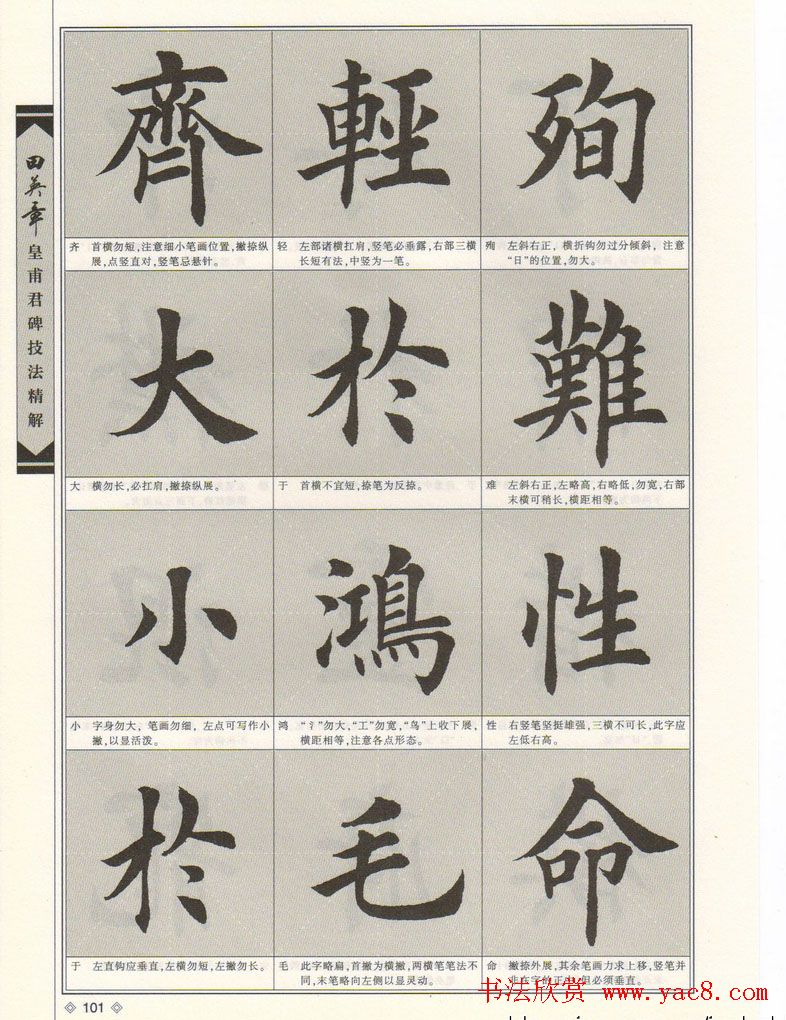 田英章
皇甫君碑技法精解
齊
齐 首横勿短,注意细小笔画位置,撇捺纵
展,点竖直对,竖笔忌悬针。
輕
轻 左部诸横扛肩,竖笔必垂露,右部三横
长短有法,中竖为一笔。
殉
殉 左斜右正,横折钩勿过分倾斜,注意
“日”的位置,勿大。
大
大 横勿长,必扛肩,撇捺纵展。
於
于 首横不宜短,捺笔为反捺。
難
难 左斜右正,左略高,右略低,勿宽,右部
末横可稍长,横距相等。
小
小 字身勿大,笔画勿细,左点可写作小
撇,以显活泼。
鴻
鸿 “氵”勿大,“工”勿宽,“鸟”上收下展,
横距相等,注意各点形态。
性
性 右竖笔坚挺雄强,三横不可长,此字应
左低右高。
於
于 左直钩应垂直,左横勿短,左撇勿长。
毛
毛 此字略扁,首撇为横撇,两横笔笔法不
同,末笔略向左侧以显灵动。
命
命 撇捺外展,其余笔画力求上移,竖笔并
非在字的正中,但必须垂直。
101
书法欣赏 www.yac8.com